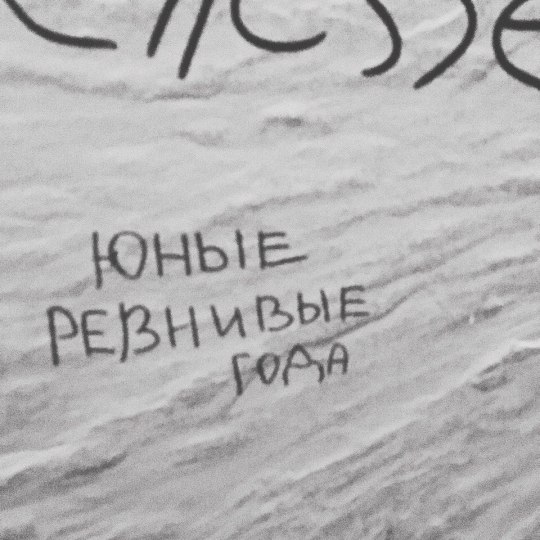 ЮНЫЕ
РЕВНИВЫЕ
ГОДА